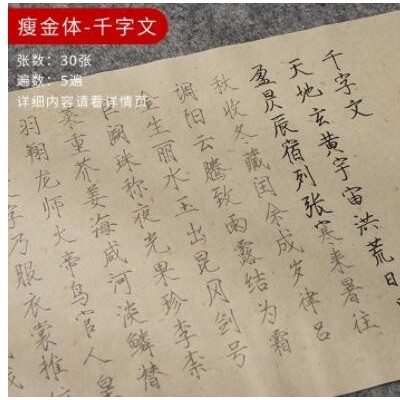 瘦金体-千字文
张数：30张
遍数：5遍
详细内容请看详情页
千字文
天地玄黄宇宙洪荒日
盈昃辰宿列张寒来暑往
秋收冬藏闰余成岁律吕
调阳云腾致雨露结为霜
金生丽水玉出昆冈剑号
巨阙珠称夜光果珍李柰
菜重芥姜海咸河淡鳞潜
羽翔龙师火帝鸟官人皇
字乃服衣裳推位